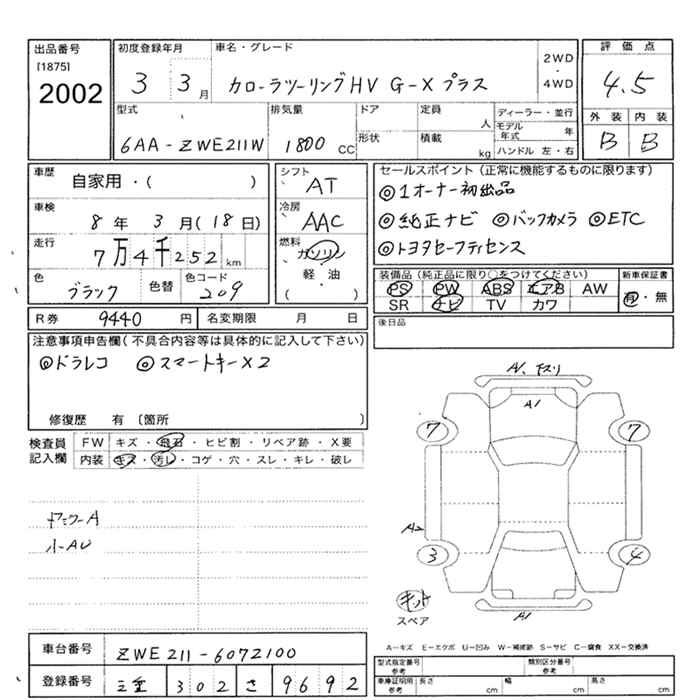 出品番号 初度登録年月 車名・グレード 評価点
[1875]
2002
3 3月 カローラツーリングHV G-Xプラス 2WD・4WD
4.5
型式 排気量 ドア 定員 人 ディーラー・並行
外装 内装
6AA-ZWE211W 1800 CC 形状 積載 kg モデル年式 年
ハンドル 左・右
B B
車歴 自家用・( )
シフト AT
セールスポイント(正常に機能するものに限ります)
◎1オーナー初出品
車検 8年 3月(18日)
冷房 AAC
◎純正ナビ ◎バックカメラ ◎ETC
走行 7万4千252km
燃料 ガソリン
軽・油
( )
◎トヨタセーフティセンス
色 ブラック 色替 色コード 209
装備品(純正品に限り○をつけてください) 新車保証書
PS PW ABS エアB AW
SR ナビ TV カワ
有・無
R券 9440円 名変期限 月 日
後日品
注意事項申告欄(不具合内容等は具体的に記入して下さい)
◎ドラレコ ◎スマートキーX2
修復歴 有 (箇所 )
検査員記入欄
FW キズ・飛石・ヒビ割・リペア跡・X要
内装 キズ・汚レ・コゲ・穴・スレ・キレ・破レ
小AU
A1、下スリ
A1
7 7
A2
3 4
キット
スペア
A1
A-キズ E-エクボ U-凹み W-補修跡 S-サビ C-腐食 XX-交換済
車台番号 ZWE211-6072100
型式指定番号 参考 類別区分番号 参考
登録番号 三重 302 さ 9692
車庫証明用 参考 長さ cm 幅 cm 高さ cm